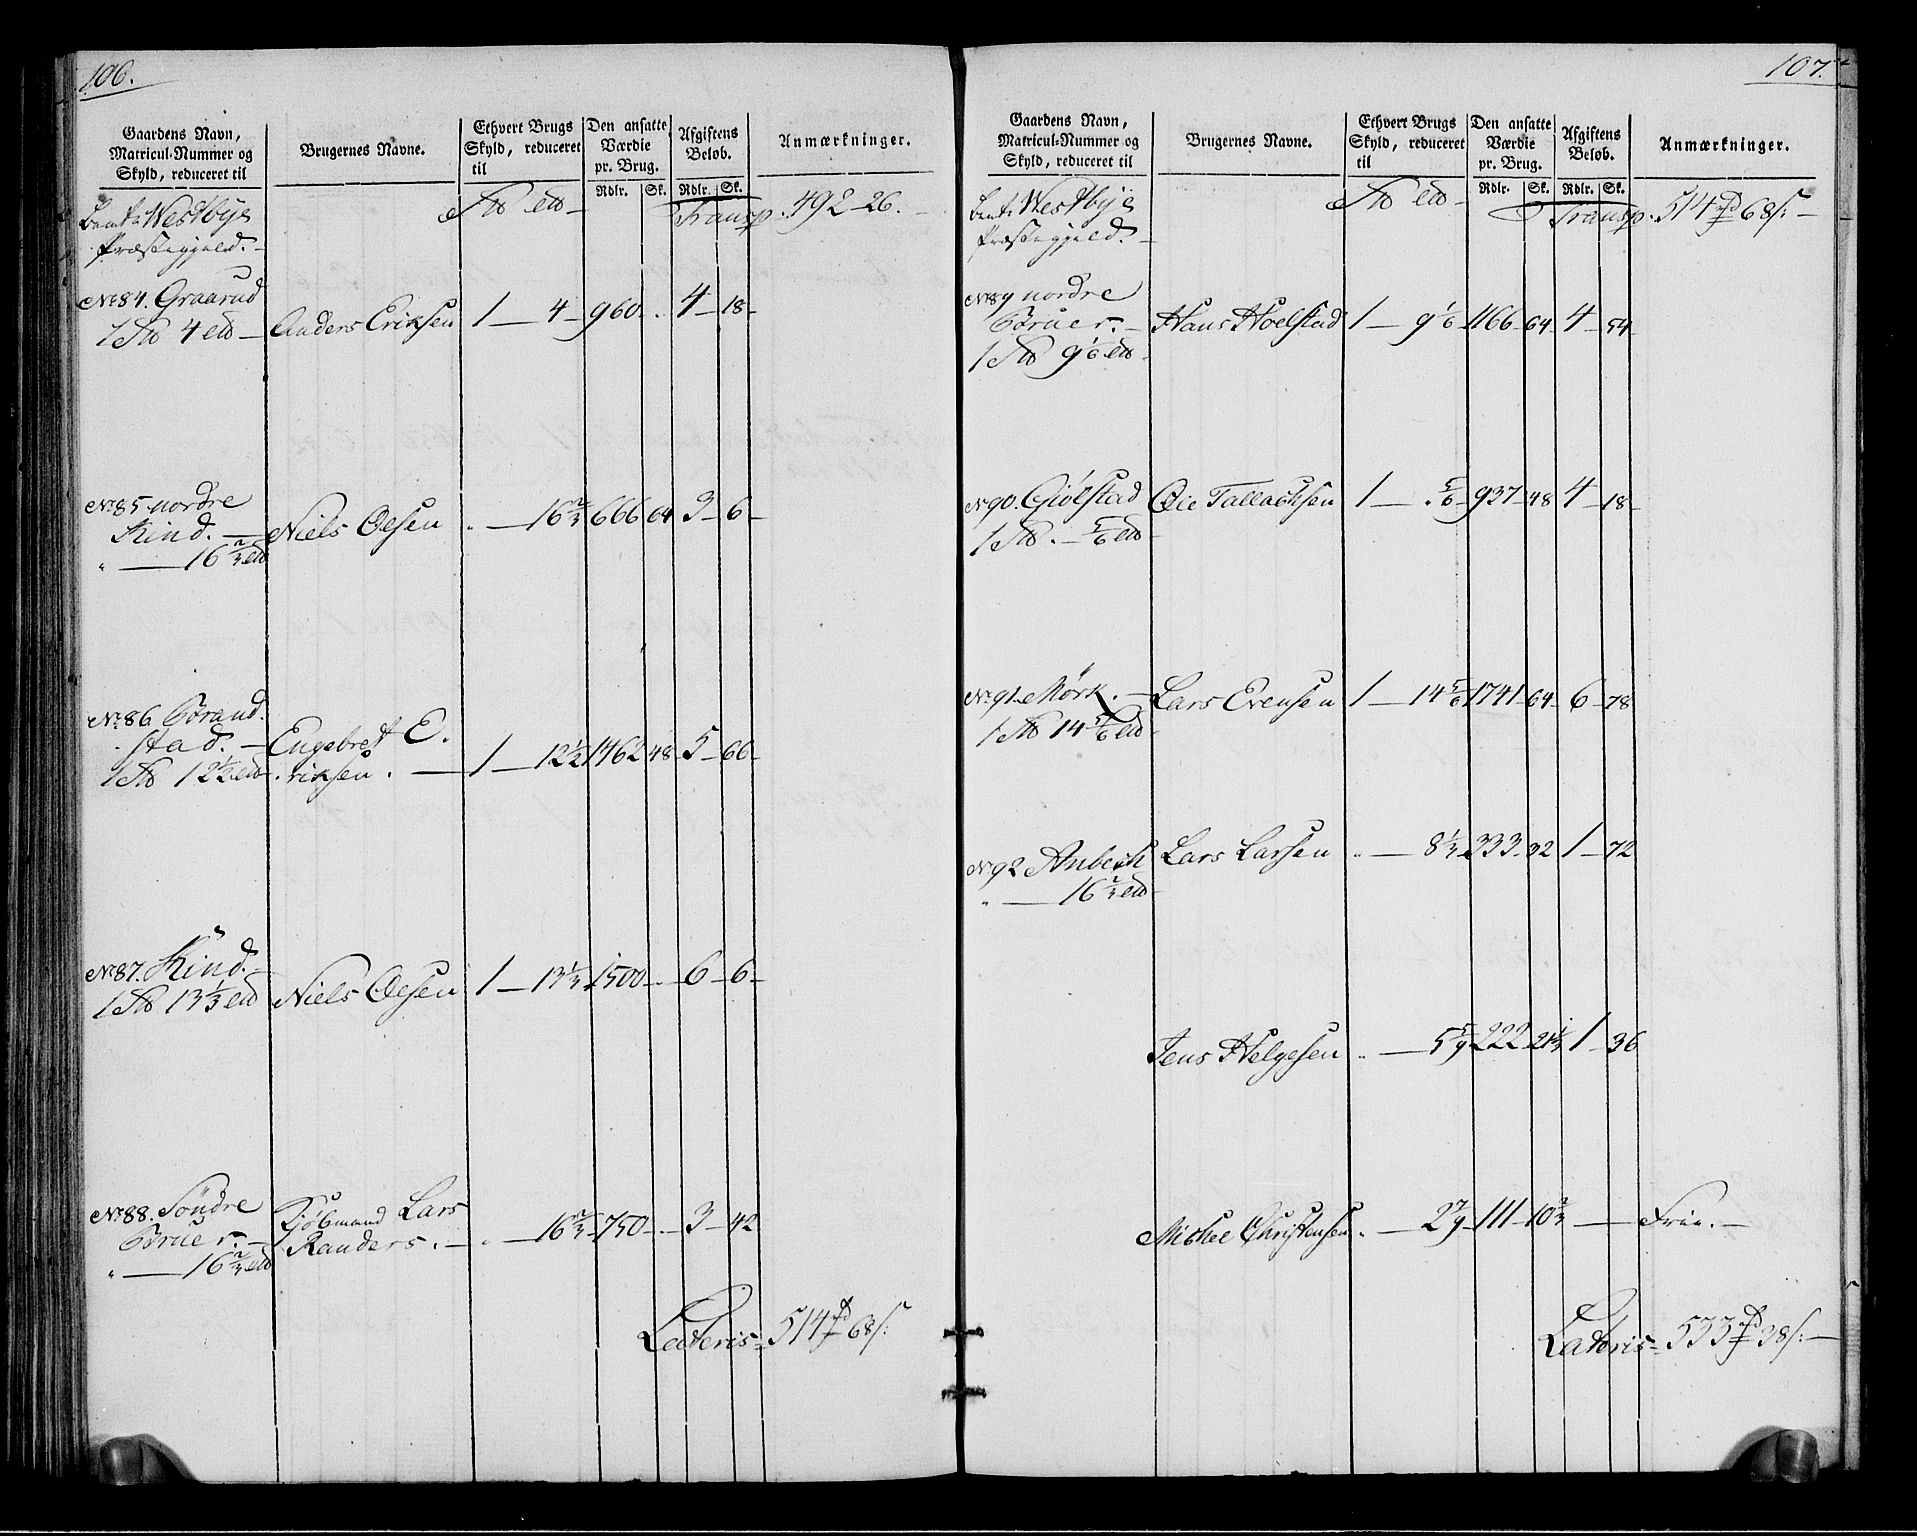 106.
Gaardens Navn, Matricul-Nummer og Skyld, reduceret til | Brugernes Navne. | Ethvert Brugs Skyld, reduceret til | Den ansatte Værdie pr. Brug. Rdlr. Sk. | Afgiftens Beløb. Rdlr. Sk. | Anmærkninger.
Westbye Transp. 492-26.
Præstegjeld.
No 84. Graarud
1 4 Anders Eriksen 1 — 4 - 960 - . 4 - 18 -
No 85 nordre
Kind. — Niels Oesen . — 16 2/3 666 64 3 - 6 -
" — 16 2/3
No 86 Brand
stad. — Engebret E.
1 12 1/2 riksen. — 1 — 12 1/2 1462 48 5 - 66 -
No 87. Kind. —
1 13 1/3 Niels Oesen 1 — 13 1/3 1500 - . 6 - 6 -
No 88. Söndre Kjöbmand Lars
Brüer. — Randers. — . — 16 2/3 750 - . 3 - 42
" — 16 2/3
Lateris 514 68 s:
107.
Gaardens Navn, Matricul-Nummer og Skyld, reduceret til | Brugernes Navne. | Ethvert Brugs Skyld, reduceret til | Den ansatte Værdie pr. Brug. Rdlr. Sk. | Afgiftens Beløb. Rdlr. Sk. | Anmærkninger.
Westbye Transp. 514 68 s: —
Præstegjeld. —
No 89 nordre
Brüer. — Hans Hoelstad 1 — 9 1/6 1166 - 64 4 - 54 -
1 9 1/6
No 90. Giölstad Ole Tallachsen 1 — . 5/6 - 937 - 48 4 - 18 -
1 . — 5/6
No 91. Mörk. — Lars Evensen 1 — 14 5/6 1741 - 64 - 6 - 78
1 14 5/6
No 92 Anbech Lars Larsen . — 8 1/3 333 - 32 1 - 72
" — 16 2/3
Jens Helgesen . — 5 5/9 222 - 21 1/3 1 - 36
Mickel Christensen . — 2 7/9 - 111 - 10 2/3 — Frie. —
Lateris 533 38 s: —